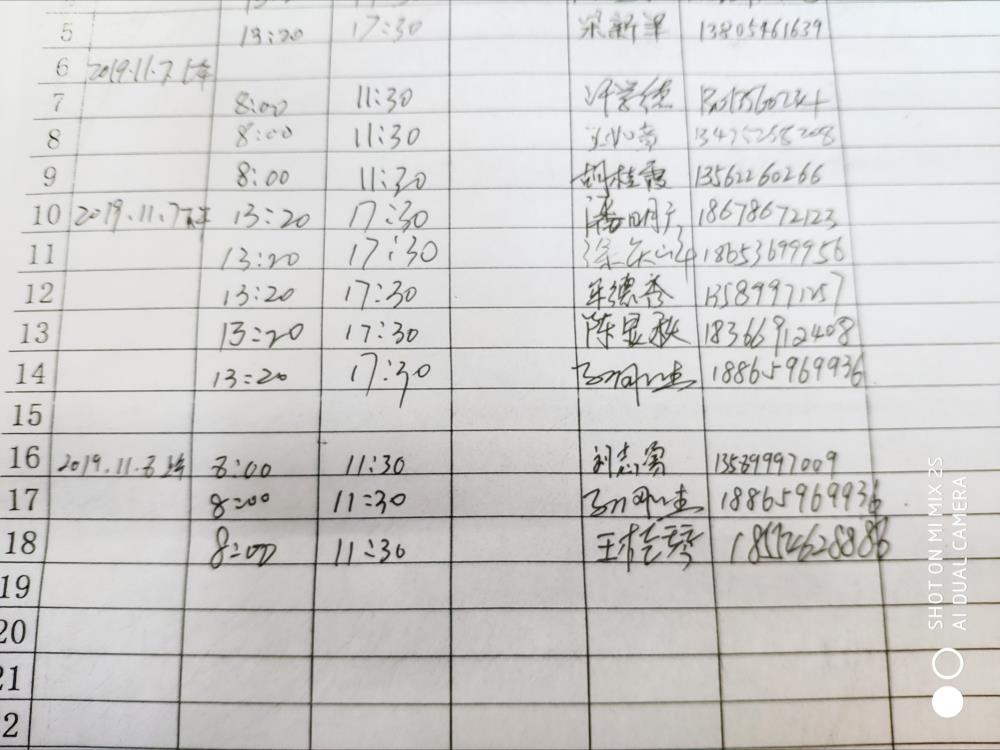 5 13:20 17:30 梁新军 13805461639
6 2019.11.7上午
7 8:00 11:30
8 8:00 11:30
9 8:00 11:30 胡桂霞 13562260266
10 2019.11.7下午 13:20 17:30 潘明广 18678672123
11 13:20 17:30 18653699956
12 13:20 17:30 德秀 13589971257
13 13:20 17:30 陈显秋 18366912408
14 13:20 17:30 18865969936
15
16 2019.11.8上午 8:00 11:30 刘志勇 13589997009
17 8:00 11:30 18865969936
18 8:00 11:30 王桂琴
19
20
21
2
SHOT ON MI MIX 2S
AI DUAL CAMERA